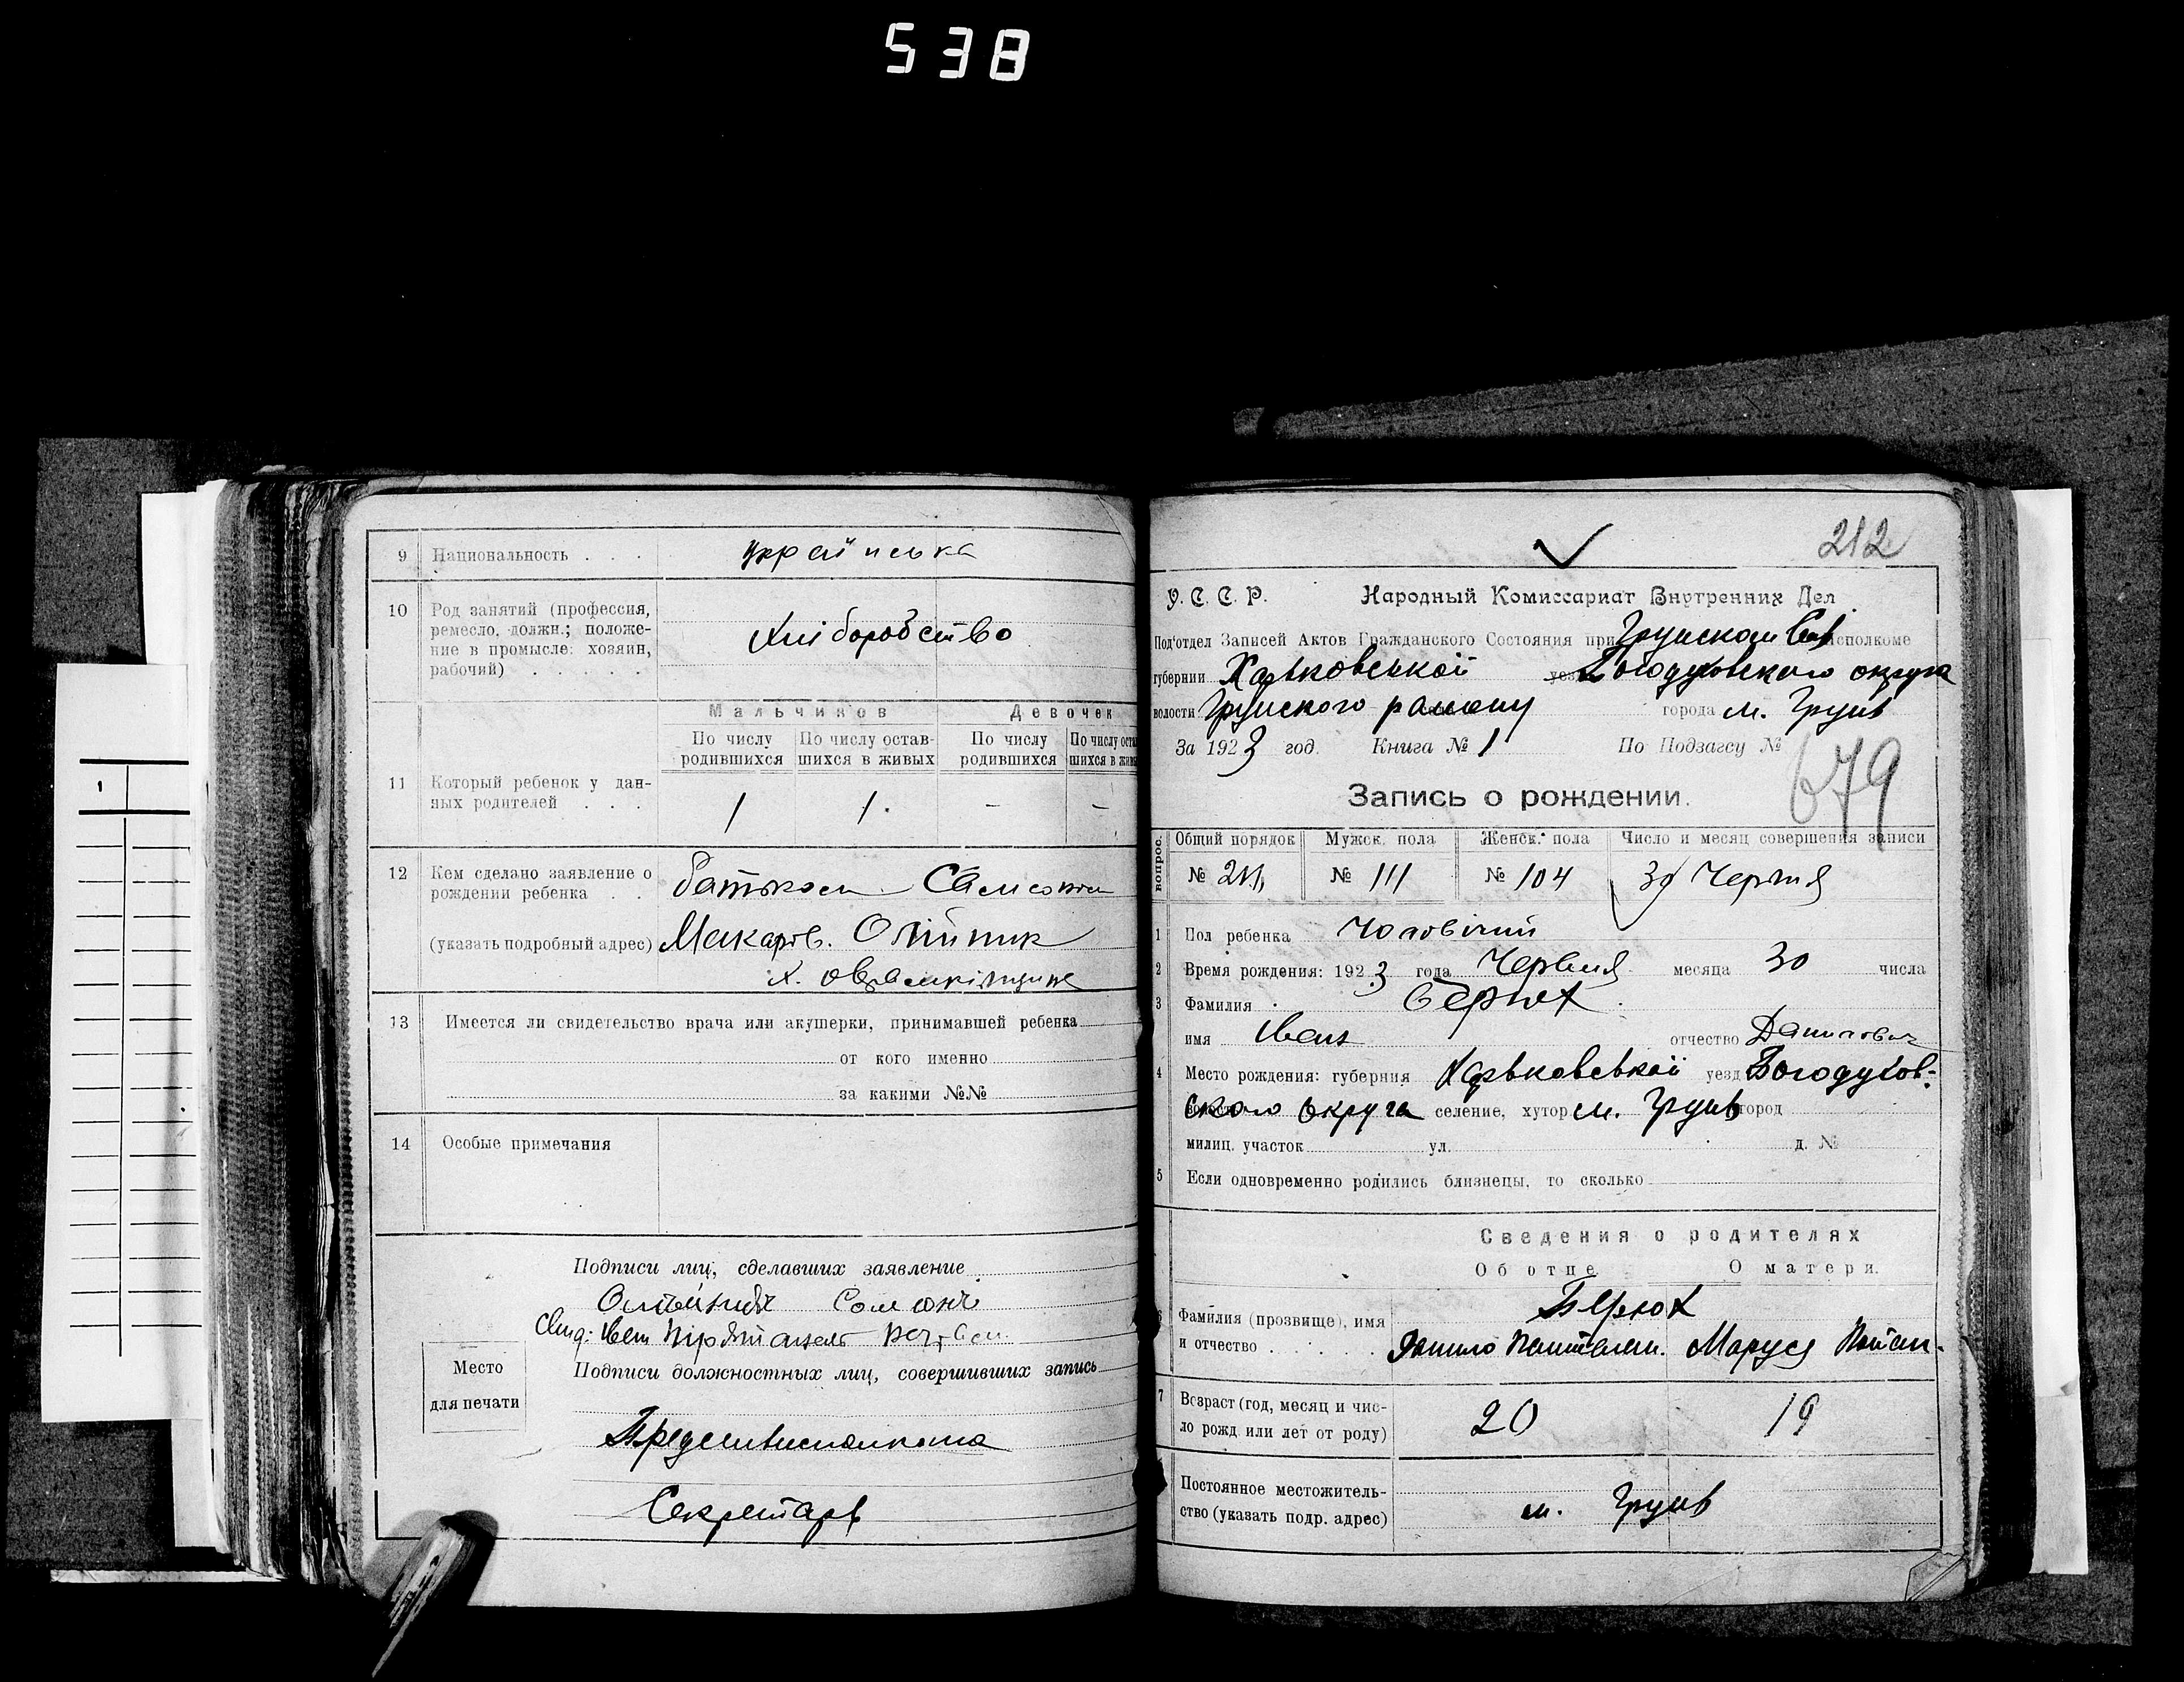 538
9 Национальность . . . українська
10 Род занятий (профессия,
ремесло, должн.; положе-
ние в промысле: хозяин,
рабочий) . . . . .
Хліборобство
Мальчиков Девочек
По числу родившихся
По числу остав-шихся в живых
По числу родившихся
11 Который ребенок у дан-
ных родителей . . .
1 1. - -
12 Кем сделано заявление о
рождении ребенка . .
(указать подробный адрес)
батьком Самсоном
Макаров. Олійник
х.
13 Имеется ли свидетельство врача или акушерки, принимавшей ребенка
от кого именно
за какими №№
14 Особые примечания
Подписи лиц, сделавших заявление
Место
для печати
Подписи должностных лиц, совершивших запись
Секретарь
212
У. С. С. Р. Народный Комиссариат Внутренних Дел
Под'отдел Записей Актов Гражданского Состояния при Грунском исполкоме
губернии Харьковської уезд Богодуховского округа
волости Грунского району города м. Грунь
За 1923 год. Книга № 1 По Подзагсу №
679
Запись о рождении.
вопрос. Общий порядок Мужск. пола Женск. пола Число и месяц совершения записи
№ № 111 № 104 Червня
1 Пол ребенка Чоловічий
2 Время рождения: 1923 года Червня месяца 30 числа
3 Фамилия Берюх
имя Иван отчество Данилович
4 Место рождения: губерния Харьковської уезд Богодухов-
ского округа селение, хутор м. Грунь город
милиц. участок ул. д. №
5 Если одновременно родились близнецы, то сколько
Сведения о родителях
Об отце О матери.
6 Фамилия (прозвище), имя
и отчество . . . . . .
Берюх
Данило Маруся
7 Возраст (год, месяц и чис-
ло рожд или лет от роду)
20 19
Постоянное местожитель-
ство (указать подр. адрес)
м. Грунь